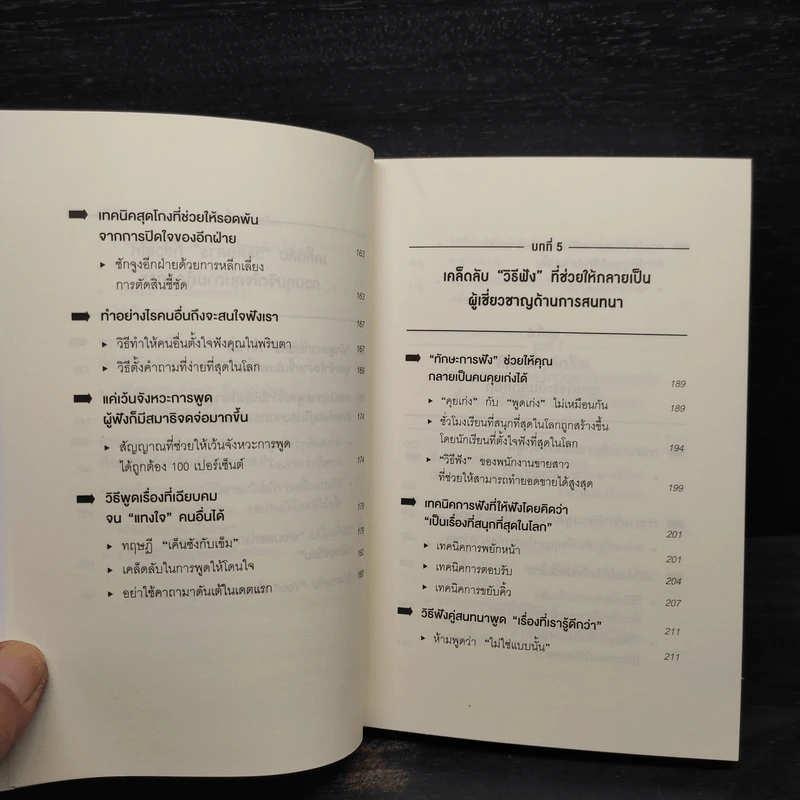 เทคนิคสุดโกงที่ช่วยให้รอดพ้น
จากการปิดใจของอีกฝ่าย 163
ชักจูงอีกฝ่ายด้วยการหลีกเลี่ยง
การตัดสินชี้ชัด 163
ทำอย่างไรคนอื่นถึงจะสนใจฟังเรา 167
วิธีทำให้คนอื่นตั้งใจฟังคุณในพริบตา 167
วิธีตั้งคำถามที่ง่ายที่สุดในโลก 169
แค่เว้นจังหวะการพูด
ผู้ฟังก็มีสมาธิจดจ่อมากขึ้น 174
สัญญาณที่ช่วยให้เว้นจังหวะการพูด
ได้ถูกต้อง 100 เปอร์เซ็นต์ 174
วิธีพูดเรื่องที่เฉียบคม
จน "แทงใจ" คนอื่นได้ 178
ทฤษฎี "เค็นซังกับเข็ม" 178
เคล็ดลับในการพูดให้โดนใจ 182
อย่าใช้คาถามาดันเต้ในเดตแรก
บทที่ 5
เคล็ดลับ "วิธีฟัง" ที่ช่วยให้กลายเป็น
ผู้เชี่ยวชาญด้านการสนทนา
"ทักษะการฟัง" ช่วยให้คุณ
กลายเป็นคนคุยเก่งได้ 189
"คุยเก่ง" กับ "พูดเก่ง" ไม่เหมือนกัน 189
ชั่วโมงเรียนที่สนุกที่สุดในโลกถูกสร้างขึ้น
โดยนักเรียนที่ตั้งใจฟังที่สุดในโลก 194
"วิธีฟัง" ของพนักงานขายสาว
ที่ช่วยให้สามารถทำยอดขายได้สูงสุด 199
เทคนิคการฟังที่ให้ฟังโดยคิดว่า
"เป็นเรื่องที่สนุกที่สุดในโลก" 201
เทคนิคการพยักหน้า 201
เทคนิคการตอบรับ 204
เทคนิคการขยับคิ้ว 207
วิธีฟังคู่สนทนาพูด "เรื่องที่เรารู้ดีกว่า" 211
ห้ามพูดว่า "ไม่ใช่แบบนั้น" 211